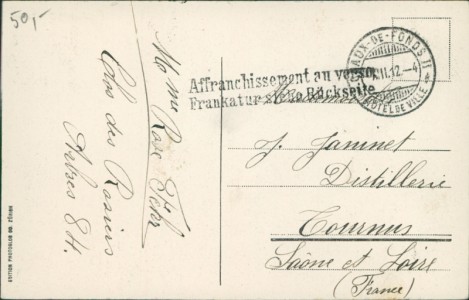 50,-
Affranchissement au verso.
Frankatur siehe Rückseite
AUX-DE-FONDS II
II.12.-4
HOTEL DE VILLE
Mme Rose Fehr
Clos des Rosiers
Arbres 84.
J. Janinet
Distillerie
Tournus
Saône et Loire
(France)
EDITION PHOTOGLOB CO. ZÜRICH